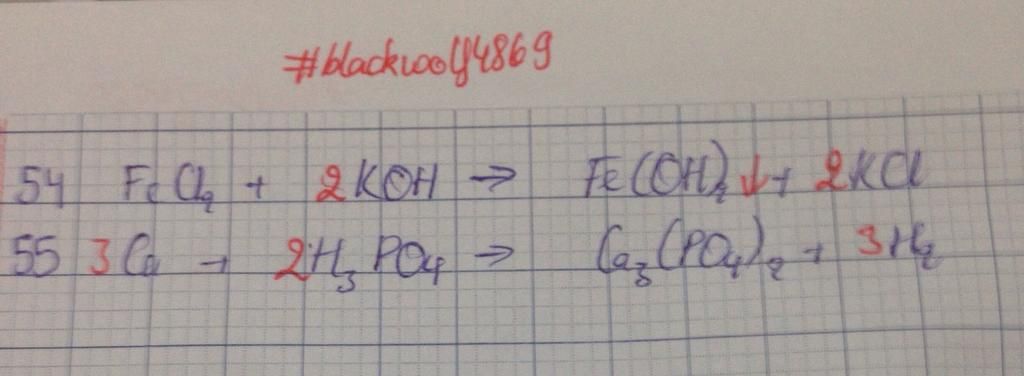 #blackwolf4869
54 FeCl₂ + 2KOH → Fe(OH)₂↓ + 2KCl
55 3Ca + 2H₃PO₄ → Ca₃(PO₄)₂ + 3H₂